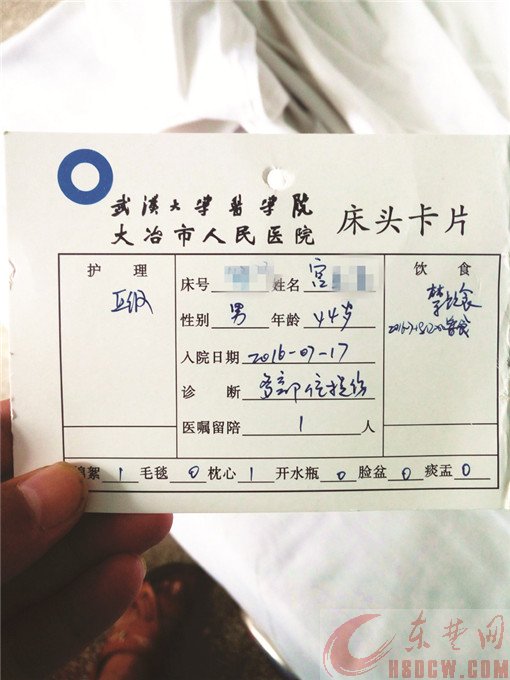 武漢大學醫學院
大冶市人民医院
床头卡片
护 理
II级
床号
姓名 宫
性别 男 年龄 44岁
入院日期 2016-07-17
诊 断 多部位损伤
医嘱留陪 1 人
饮 食
禁饮食
棉絮 1 毛毯 0 枕心 1 开水瓶 0 脸盆 0 痰盂 0
东楚网
HSDCW.COM